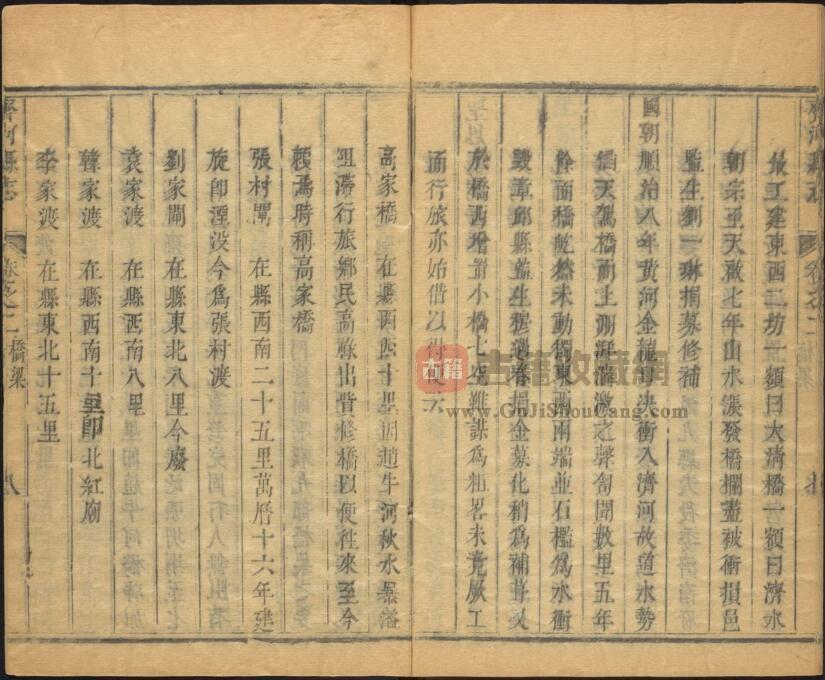 齊河縣志
卷之二
最工建東西二坊一額曰大清橋一額曰濟水
朝宗至天啟七年山水漲發橋欄盡被衝損邑
監生劉一琳捐募修補
國朝順治八年黃河金龍口決衝入濟河故道水勢
滔天駕橋而上澎湃滿激之聲訇聞數里五年
餘而橋屹然未動獨東西兩端並石檻爲水衝
毀章邱縣監生穆選春捐金募化稍爲補葺又
於橋西增置小橋七空雖謀爲粗畧未竟厥工
而行旅亦始借以得便云
高家橋 在縣西四十里因趙牛河秋水暴溢
阻滯行旅鄉民高祿出貲修橋以便徃來至今
賴焉時稱高家橋
張村閘 在縣西南二十五里萬曆十六年建
旋即湮没今爲張村渡
劉家閘 在縣東北八里今廢
袁家渡 在縣西南八里
韓家渡 在縣西南十里即北紅廟
李家渡 在縣東北十五里
齊河縣志
卷之二
橋梁
八
古籍
古籍收藏網
www.GuJiShouCang.com